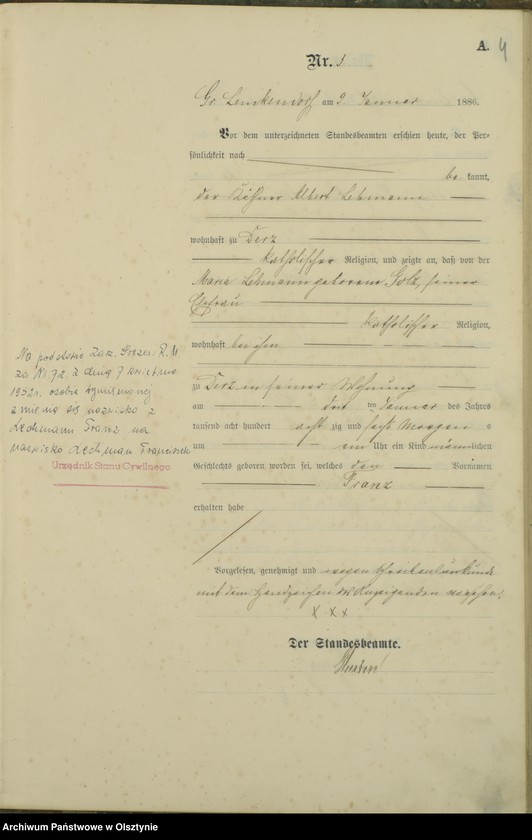 A. 4
Nr. 3
Gr. Lemkendorf am 9 Januar 1886.
Vor dem unterzeichneten Standesbeamten erschien heute, der Per-
sönlichkeit nach
be kannt,
der Käthner Albert Lehmann
wohnhaft zu Derz
katholischer Religion, und zeigte an, daß von der
Maria Lehmann geborenen Golz, seiner
Ehefrau
katholischer Religion,
wohnhaft bei ihm
zu Derz in seiner Wohnung
am ten Januar des Jahres
tausend acht hundert acht zig und sechs Morgens
um ein Uhr ein Kind männlichen
Geschlechts geboren worden sei, welches den Vornamen
Franz
erhalten habe
Vorgelesen, genehmigt und wegen Schreibensunkunde
mit dem Handzeichen des Anzeigenden versehen.
X X X
Der Standesbeamte.
Na podstawie Zarz. Prezes. R. M
za Nr 72 z dnia 7 kwietnia
1952r. osoba wymienionej
zmienia się nazwisko z
Lechmann Franz na
nazwisko Lechman Franciszek
Urzędnik Stanu Cywilnego
Archiwum Państwowe w Olsztynie